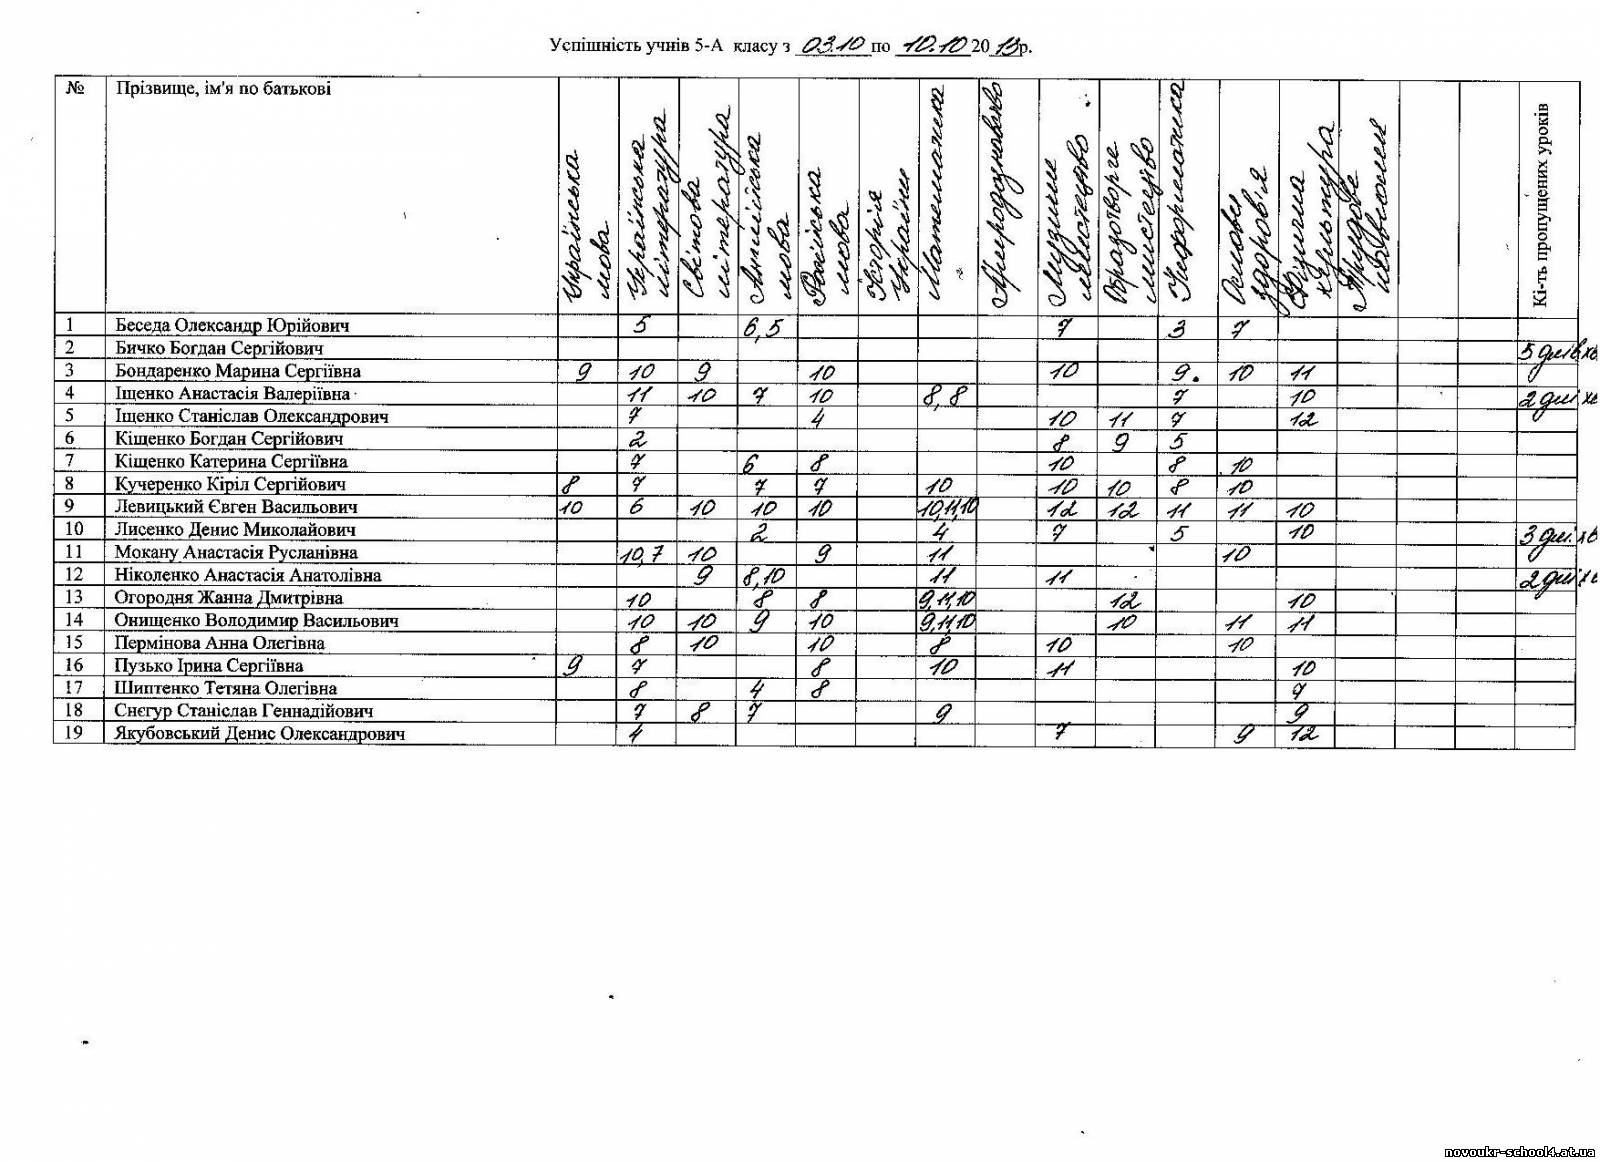 Успішність учнів 5-А класу з 03.10 по 10.10 2013р.
№ Прізвище, ім'я по батькові Українська мова Українська література Світова література Англійська мова Російська мова Історія України Математика Природознавство Музичне мистецтво Образотворче мистецтво Інформатика Основи здоров'я Фізична культура Трудове Кі-ть пропущених уроків
1 Беседа Олександр Юрійович 5 6,5 7 3 7
2 Бичко Богдан Сергійович 5 днів хв
3 Бондаренко Марина Сергіївна 9 10 9 10 10 9. 10 11
4 Іщенко Анастасія Валеріївна 11 10 7 10 8,8 7 10 2 дні хв
5 Іщенко Станіслав Олександрович 7 4 10 11 7 12
6 Кіщенко Богдан Сергійович 2 8 9 5
7 Кіщенко Катерина Сергіївна 7 6 8 10 8 10
8 Кучеренко Кіріл Сергійович 8 7 7 7 10 10 10 8 10
9 Левицький Євген Васильович 10 6 10 10 10 10,11,10 12 12 11 11 10
10 Лисенко Денис Миколайович 2 4 7 5 10 3 дні хв
11 Мокану Анастасія Русланівна 10,7 10 9 11 10
12 Ніколенко Анастасія Анатолівна 9 8,10 11 11 2 дні хв
13 Огородня Жанна Дмитрівна 10 8 8 9,11,10 12 10
14 Онищенко Володимир Васильович 10 10 9 10 9,11,10 10 11 11
15 Пермінова Анна Олегівна 8 10 10 8 10 10
16 Пузько Ірина Сергіївна 9 7 8 10 11 10
17 Шиптенко Тетяна Олегівна 8 4 8 9
18 Снєгур Станіслав Геннадійович 7 8 7 9 9
19 Якубовський Денис Олександрович 4 7 9 12
novoukr-school4.at.ua